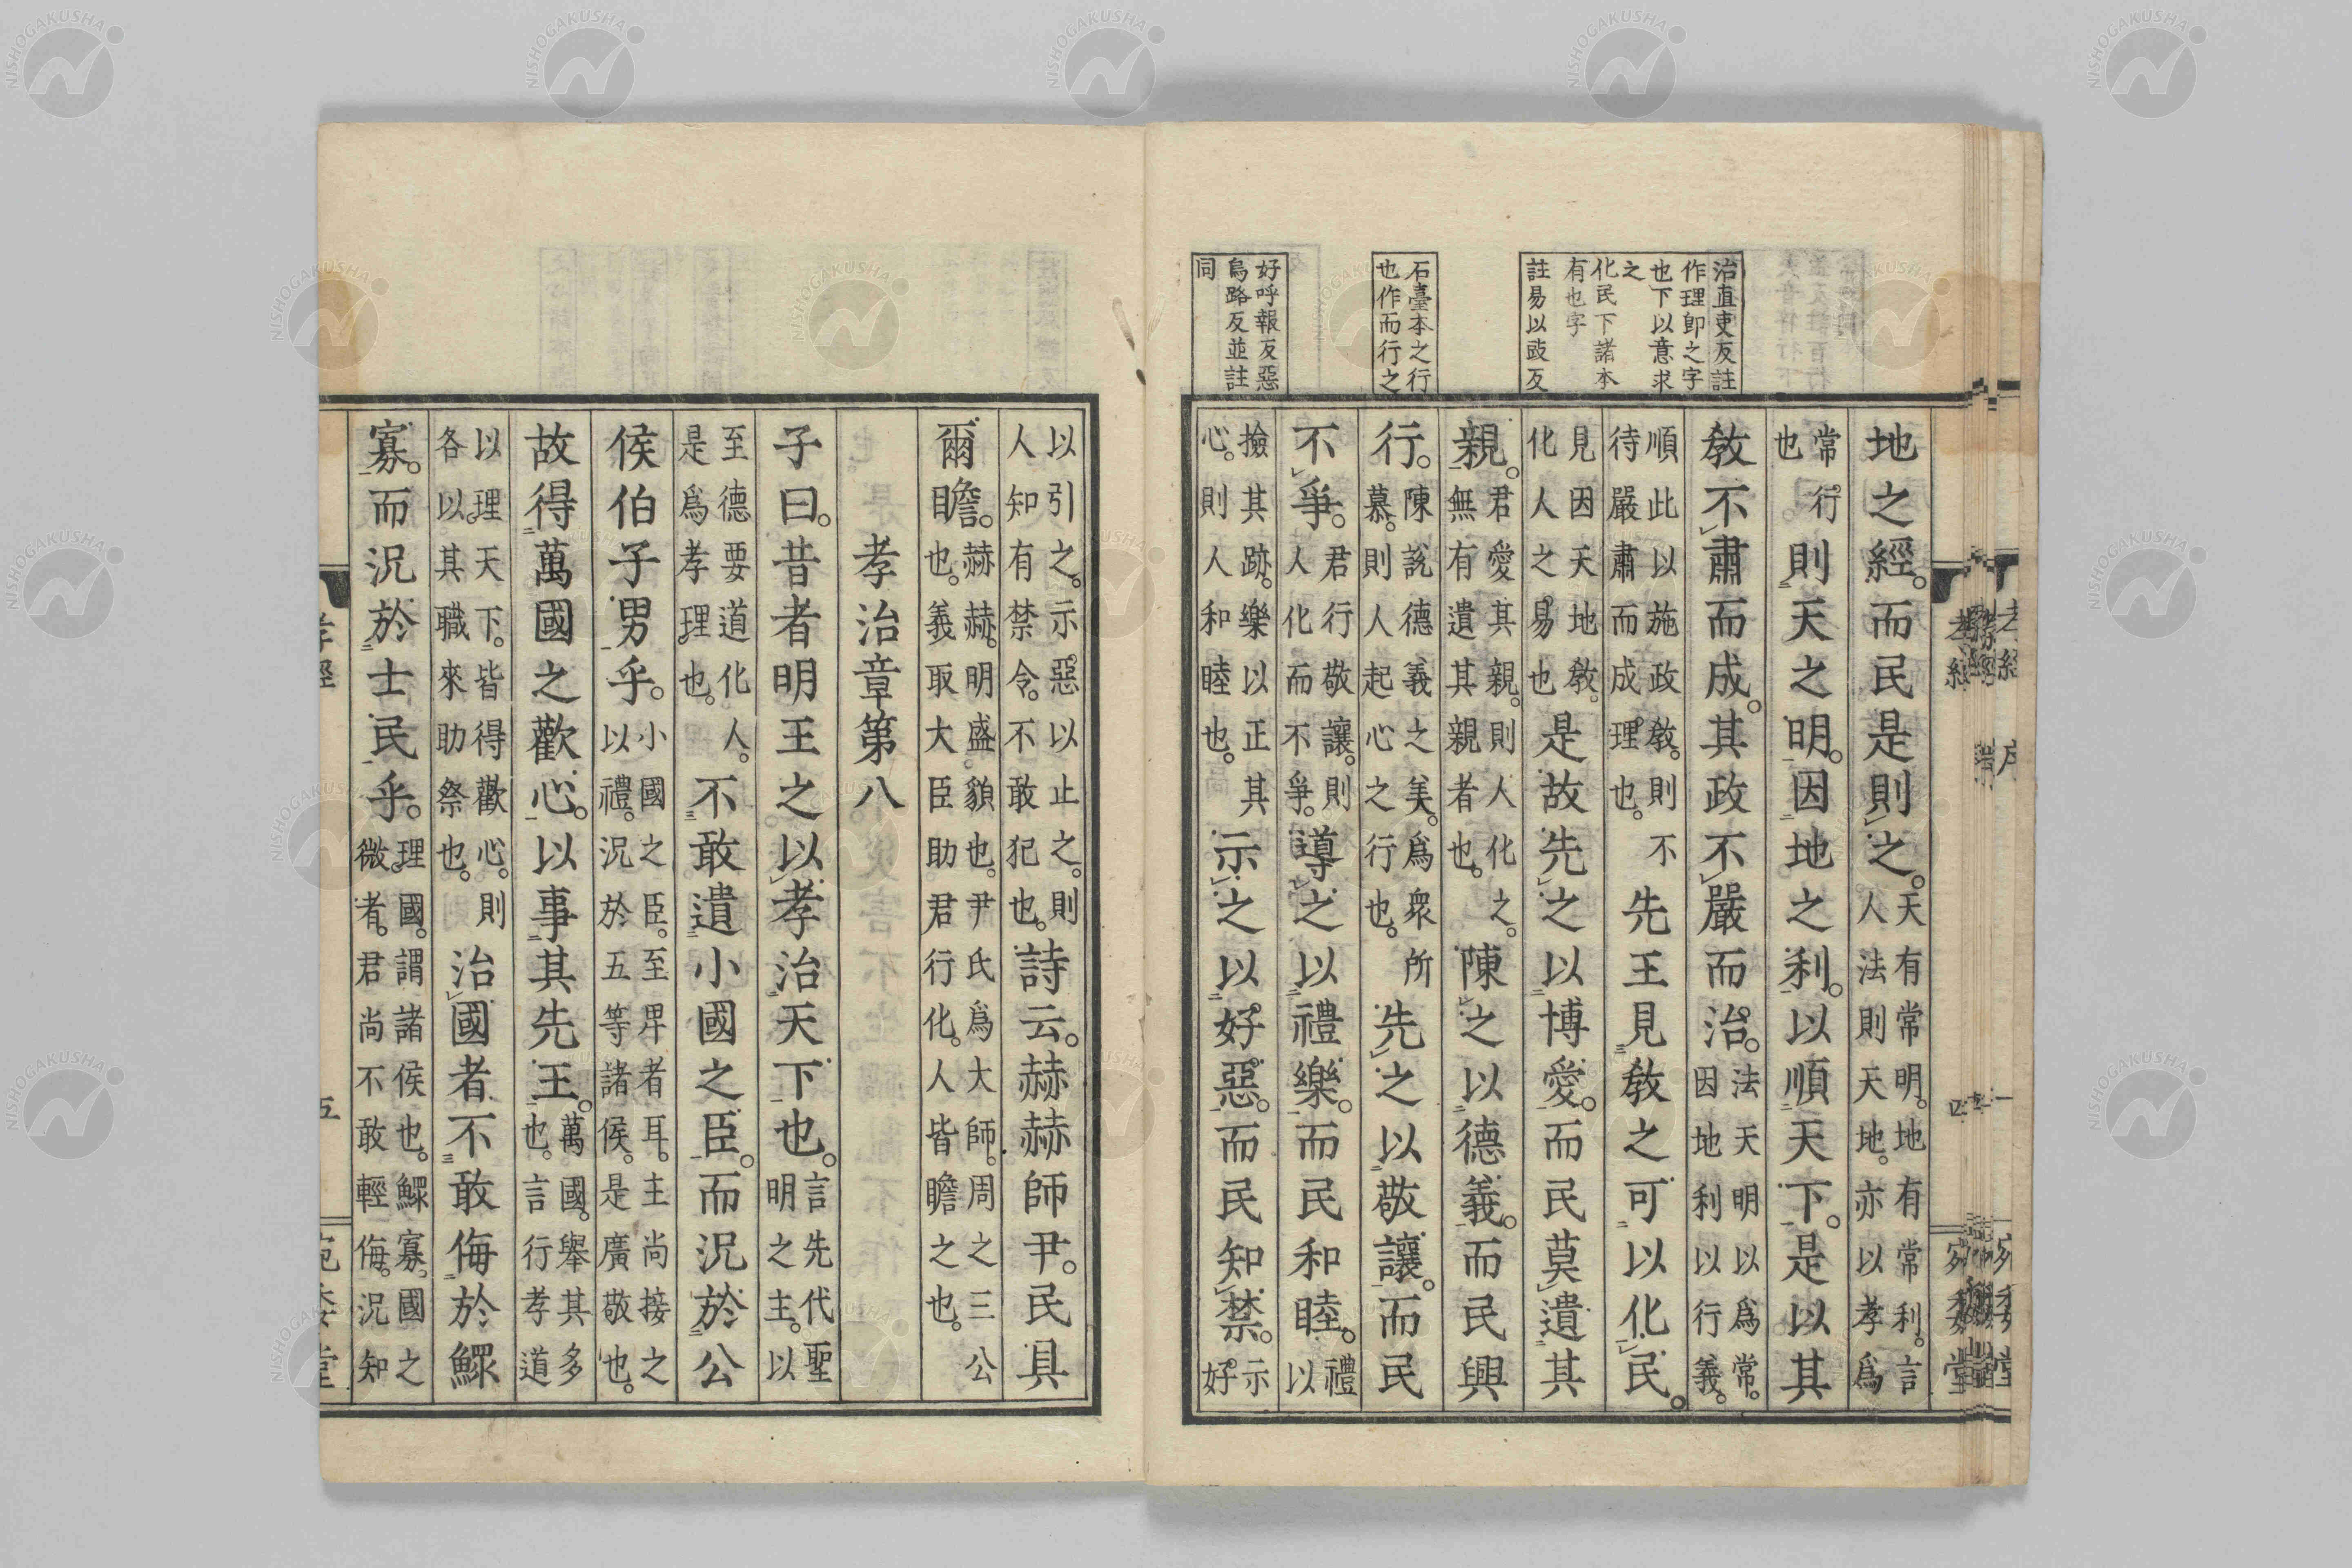 治直吏反註
作理即之字
也下以意求
之
化民下諸本
有也字
註易以豉反
石臺本之行
也作而行之
好呼報反惡
烏路反並註
同
地之經。而民是則之。天有常明。地有常利。言人法則天地。亦以孝爲
常行。也則天之明。因地之利。以順天下。是以其
敎不肅而成。其政不嚴而治。法天明以爲常。因地利以行義。
順此以施政敎。則不待嚴肅而成理也。先王見敎之可以化民。
見因天地敎。化人之易也是故先之以博愛。而民莫遺其
親。君愛其親。則人化之。無有遺其親者也。陳之以德義。而民興
行。陳說德義之美。爲衆所慕。則人起心之行也。先之以敬讓。而民
不爭。君行敬讓。則人化而不爭。導之以禮樂。而民和睦。禮以
撿其跡。樂以正其心。則人和睦也。示之以好惡。而民知禁。示好
以引之。示惡以止之。則人知有禁令。不敢犯也。詩云。赫赫師尹。民具
爾瞻。赫赫。明盛貌也。尹氏爲大師。周之三公也。義取大臣助君行化。人皆瞻之也。
孝治章第八
子曰。昔者明王之以孝治天下也。言先代聖明之主。以
至德要道化人。是爲孝理也。不敢遺小國之臣。而況於公
侯伯子男乎。小國之臣。至畀者耳。主尚接之以禮。況於五等諸侯。是廣敬也。
故得萬國之歡心。以事其先王。萬國。舉其多也。言行孝道
以理天下。皆得歡心。則各以其職來助祭也。治國者不敢侮於鰥
寡。而況於士民乎。理國。謂諸侯也。鰥寡。國之微者。君尚不敢輕侮。況知
孝經
五